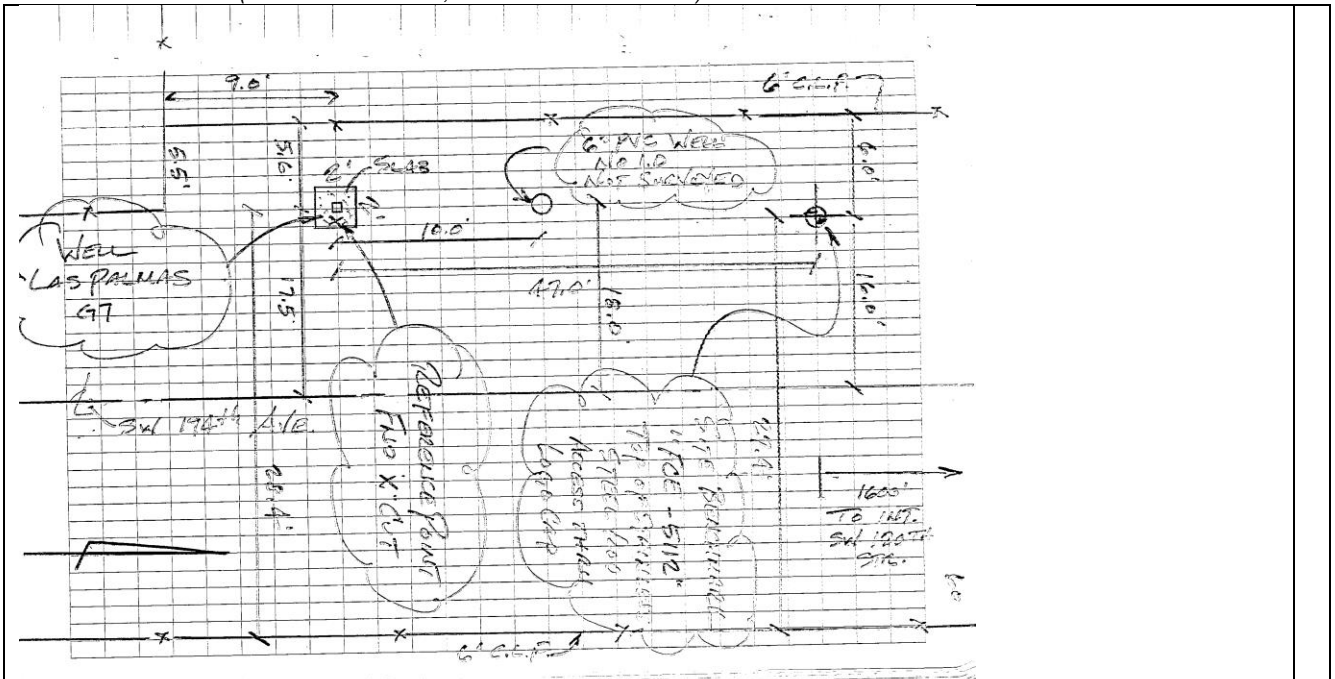 9.0'
6' C.L.F.
5.5'
5.6'
2'
SLAB
6" PVC WELL
NO I.D
NOT SURVEYED
6.0'
WELL
LAS PALMAS
G7
10.0'
47.0'
17.5'
18.0'
16.0'
SW 194TH AVE.
REFERENCE POINT
FND X-CUT
SITE BENCHMARK
"FCE-5112"
TOP OF STAINLESS
STEEL ROD
ACCESS THRU
LOGO CAP
1600'
TO INT.
SW 120TH
STR.
6' C.L.F.